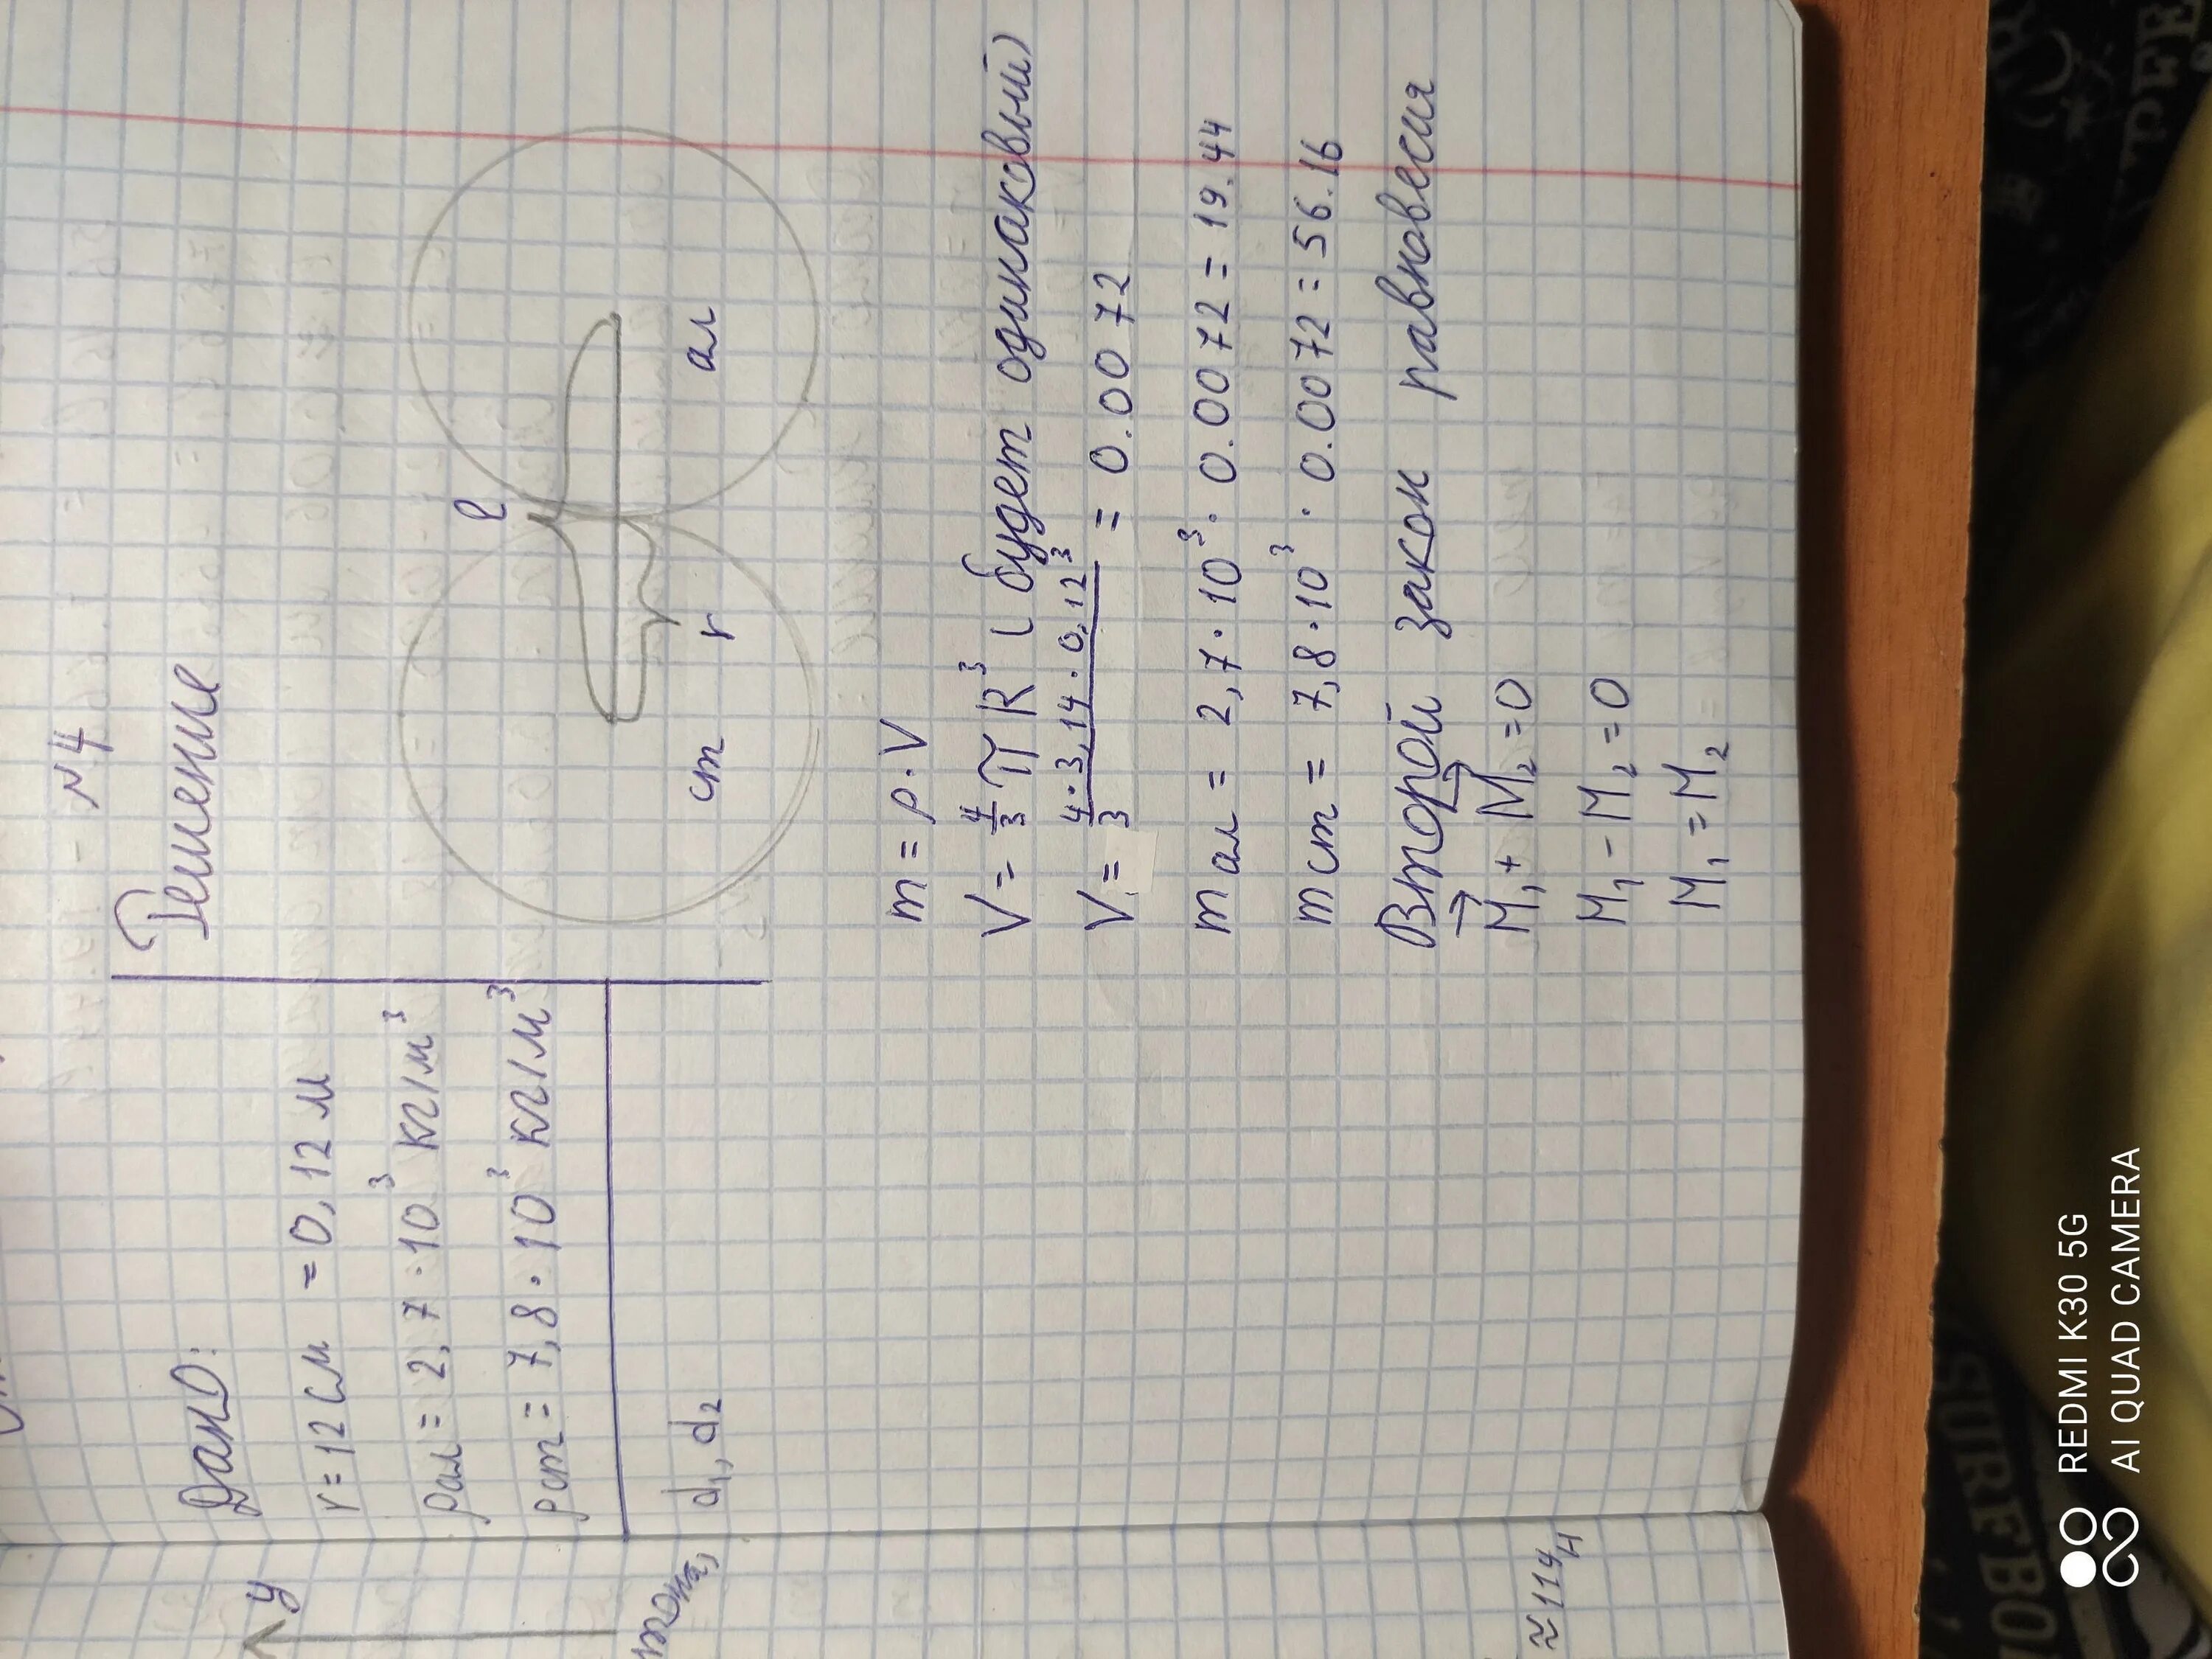 N4
Дано:
Решение
r = 12 см = 0,12 м
ρал = 2,7 · 10³ кг/м³
ρст = 7,8 · 10³ кг/м³
d₁, d₂
l
ст r ал
m = ρ · V
V = 4/3 π R³ ( будет одинаковый)
V = 4 · 3,14 · 0,12³ / 3 = 0.0072
m ал = 2,7 · 10³ · 0.0072 = 19.44
m ст = 7,8 · 10³ · 0.0072 = 56.16
Второй закон равновесия
M⃗₁ + M⃗₂ = 0
M₁ - M₂ = 0
M₁ = M₂
y
≈114 Н
REDMI K30 5G
AI QUAD CAMERA